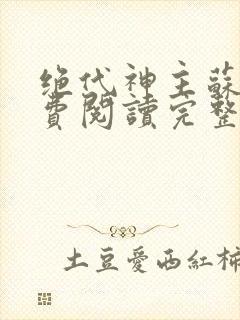 绝代神主蘇
費閱讀完整
土豆愛西紅柿